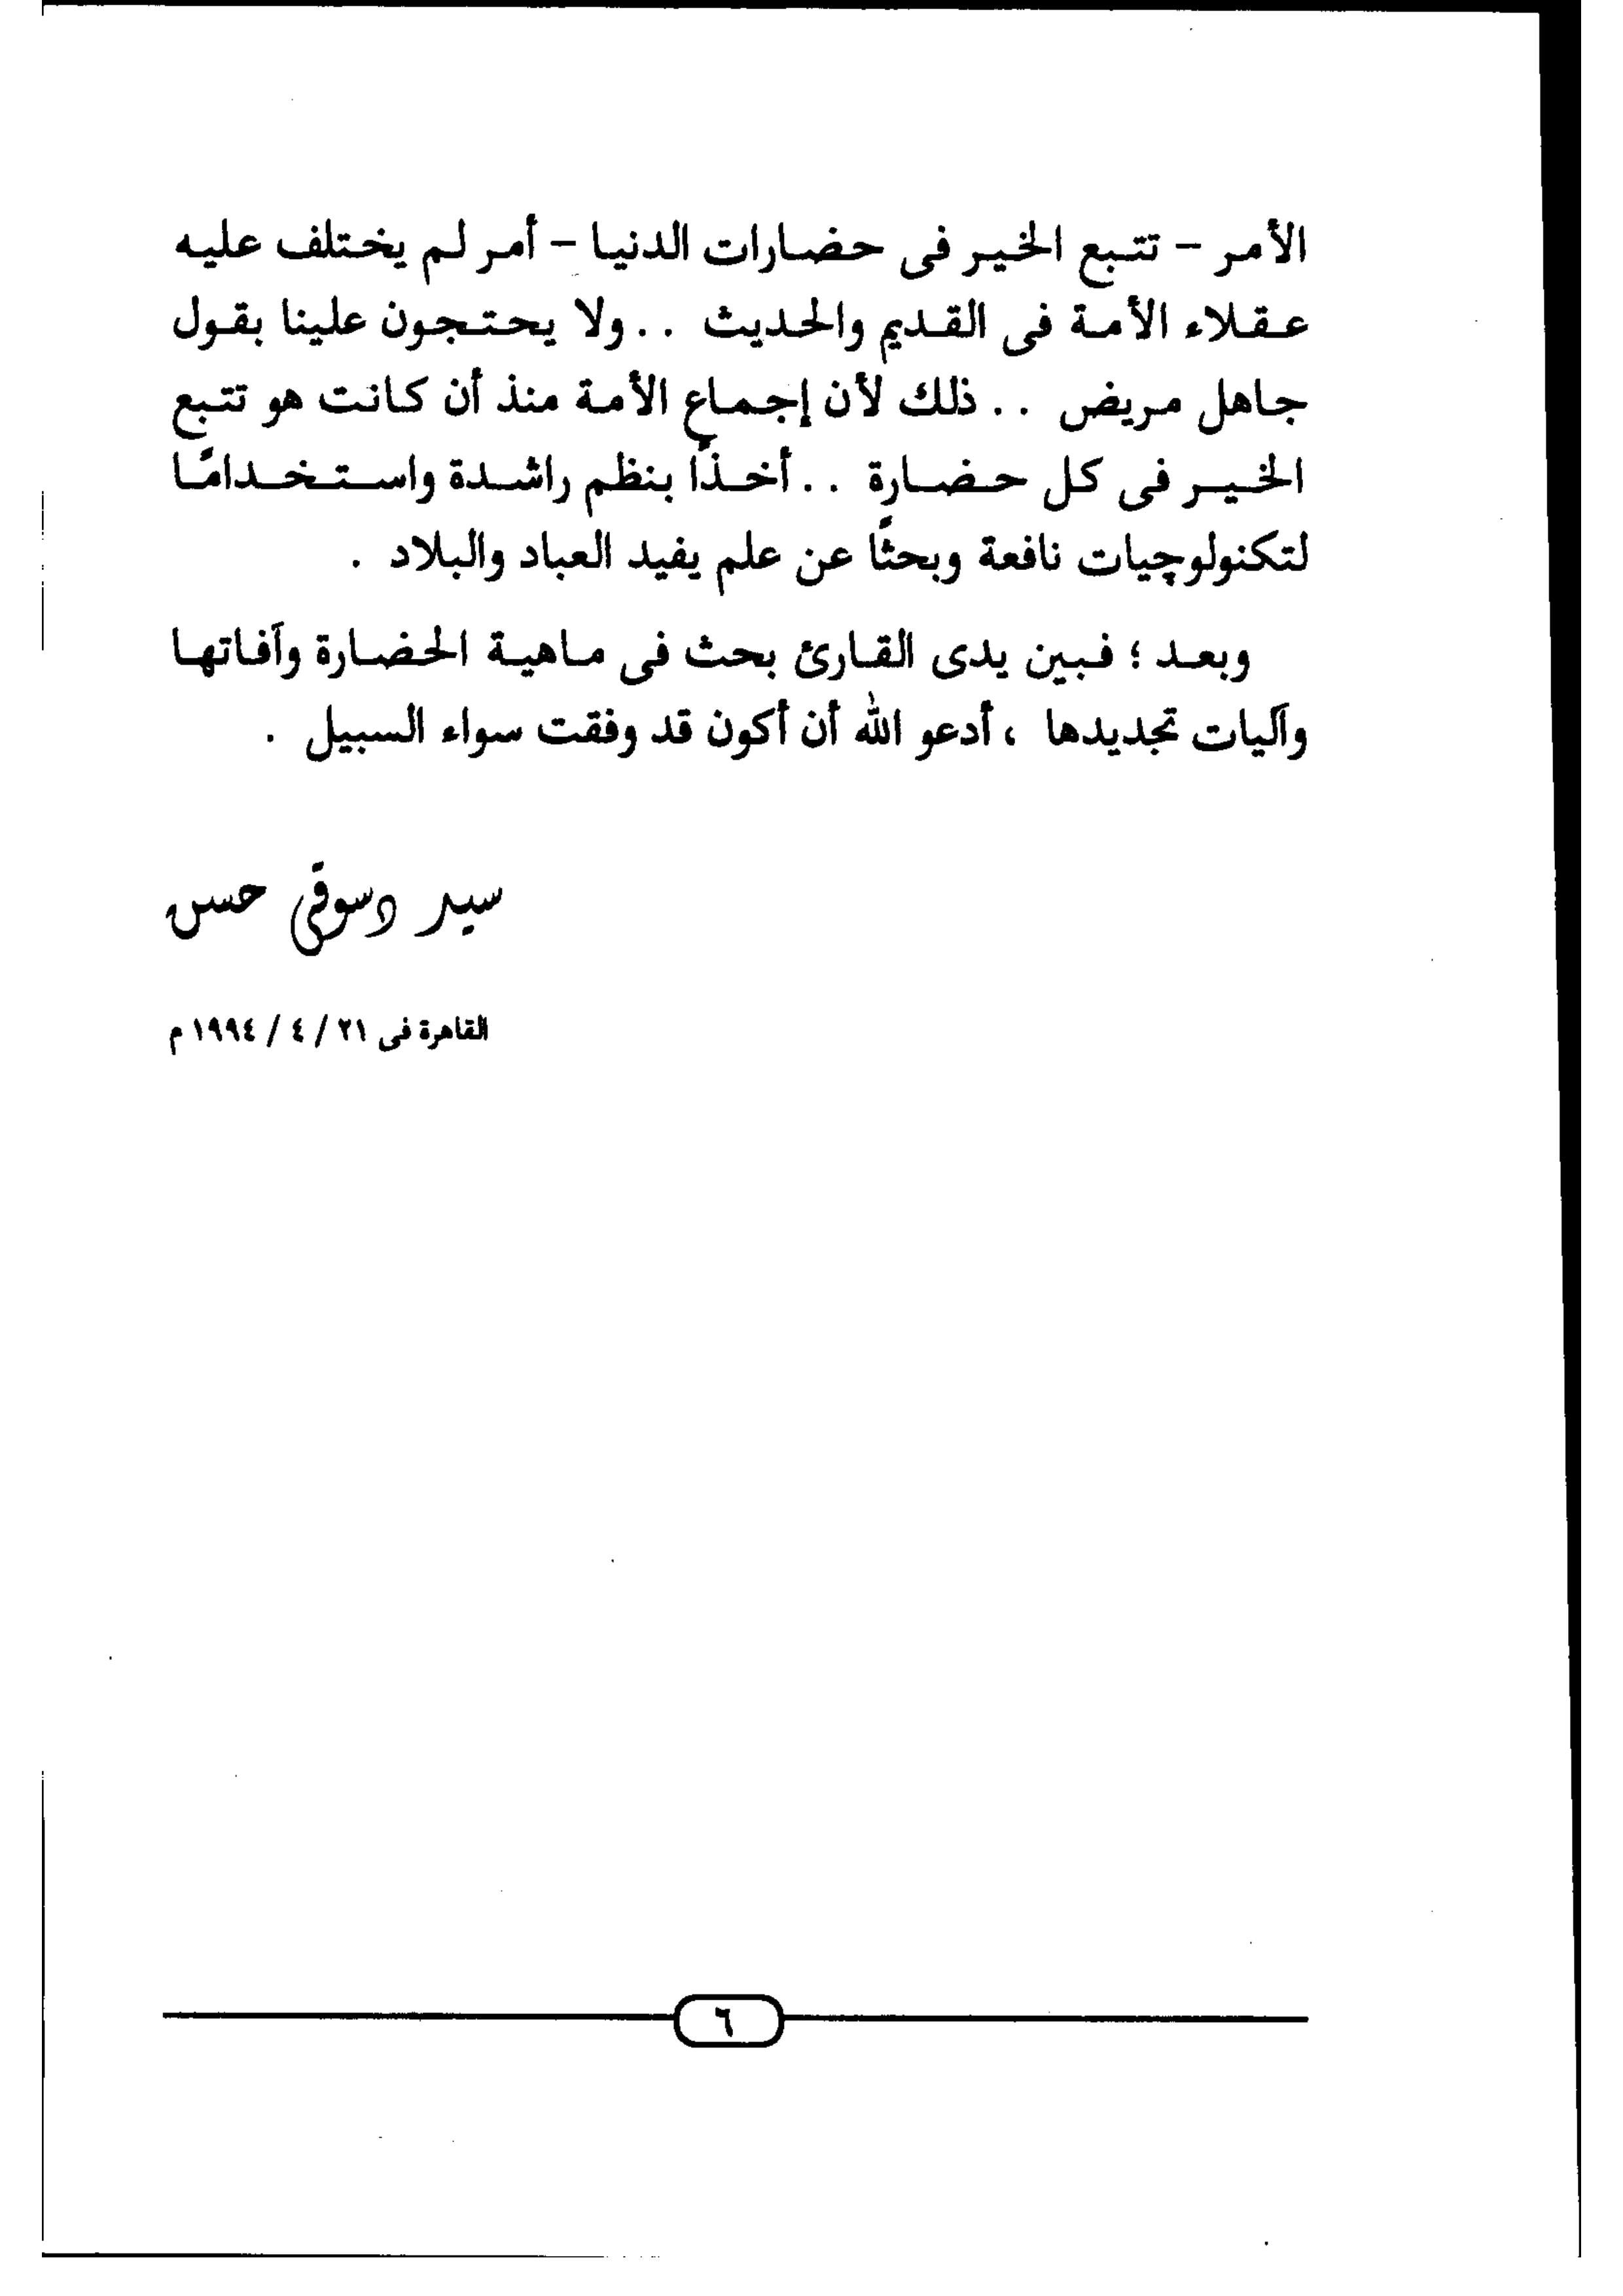 الأمر – تتبع الخير فى حضارات الدنيا – أمر لم يختلف عليه
عقلاء الأمة فى القديم والحديث .. ولا يحتجون علينا بقول
جاهل مريض .. ذلك لأن إجماع الأمة منذ أن كانت هو تتبع
الخير فى كل حضارة .. أخذًا بنظم راشدة واستخدامًا
لتكنولوچيات نافعة وبحثًا عن علم يفيد العباد والبلاد .
وبعد ؛ فبين يدى القارئ بحث فى ماهية الحضارة وآفاتها
وآليات تجديدها ، أدعو الله أن أكون قد وفقت سواء السبيل .
سيد دسوقى حسن
القاهرة فى ٢١ / ٤ / ١٩٩٤ م
٦